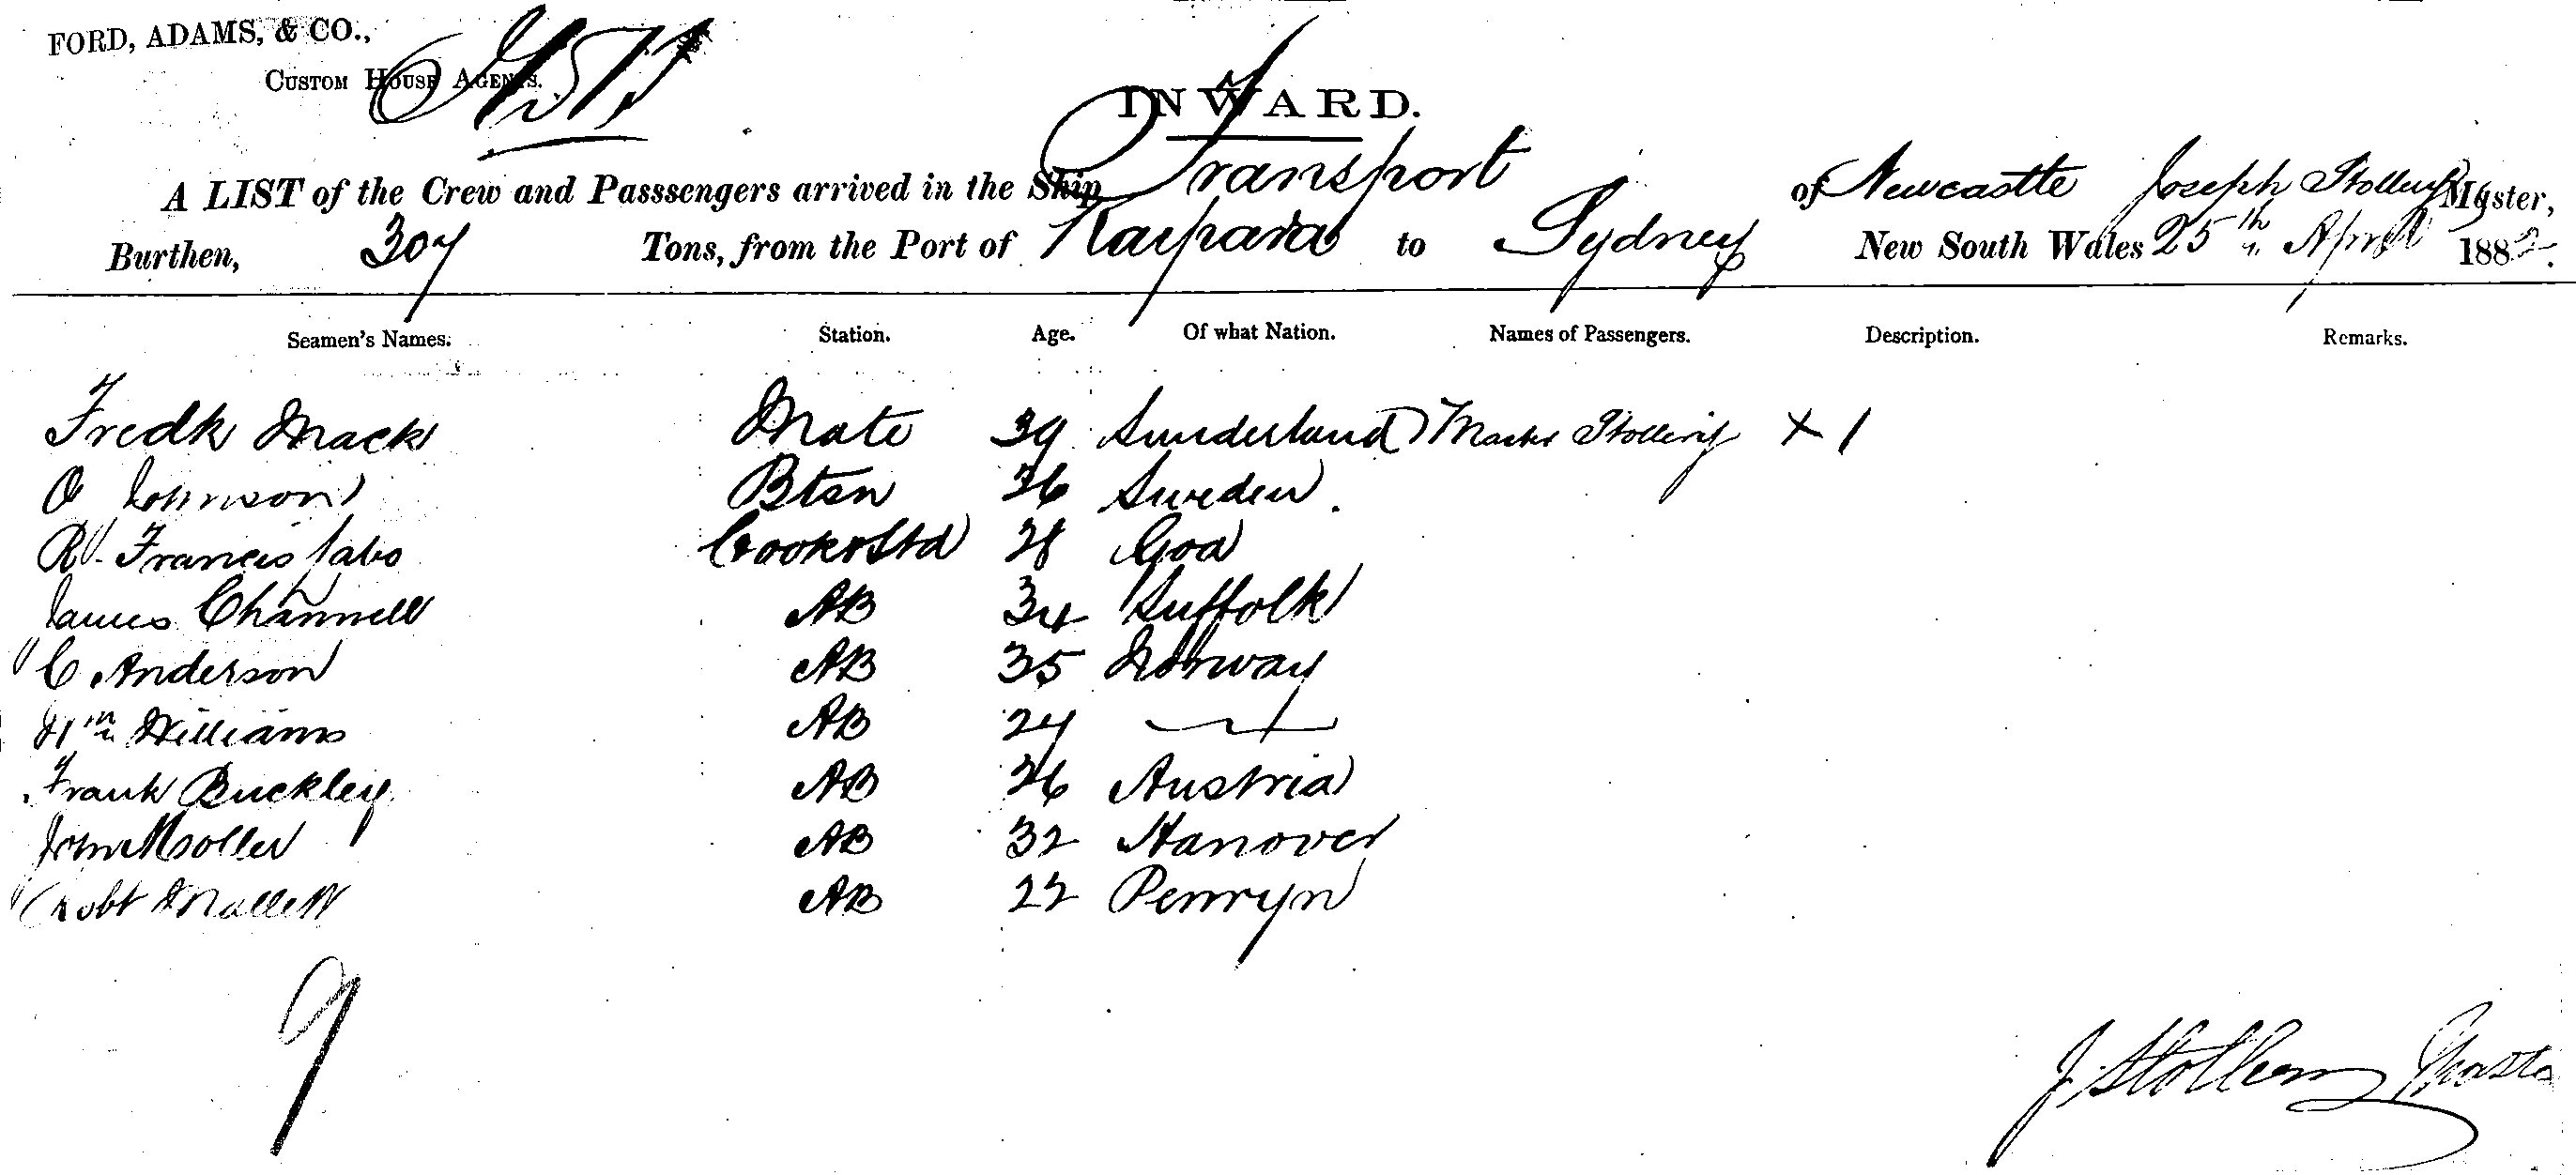 FORD, ADAMS, & CO.,
CUSTOM HOUSE AGENTS.
INWARD.
A LIST of the Crew and Passsengers arrived in the Ship Transport of Newcastle Joseph Master,
Burthen, 307 Tons, from the Port of Kaipara to Sydney New South Wales 25th April 1882.
Seamen's Names. Station. Age. Of what Nation. Names of Passengers. Description. Remarks.
Fredk Mack Mate 39 Sunderland Master X 1
O Johnson Btsn 26 Sweden
R. Francis Cook & Std 28 Goa
James Channell AB 34 Suffolk
C. Anderson AB 35 Norway
Wm Williams AB 24
Frank Buckley AB 26 Austria
John Moller AB 32 Hanover
Robt Mallett AB 22 Penryn
9
J